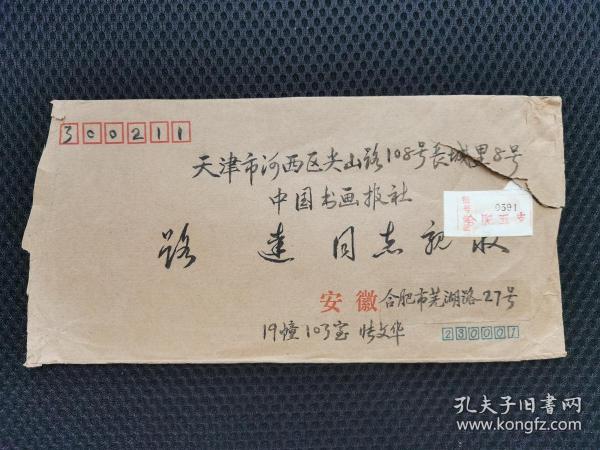 300211
天津市河西区尖山路108号長城里8号
中国书画报社
0391
路達同志親收
安徽合肥市芜湖路27号
19幢103室 张文华
230007
孔夫子旧书网
www.kongfz.com